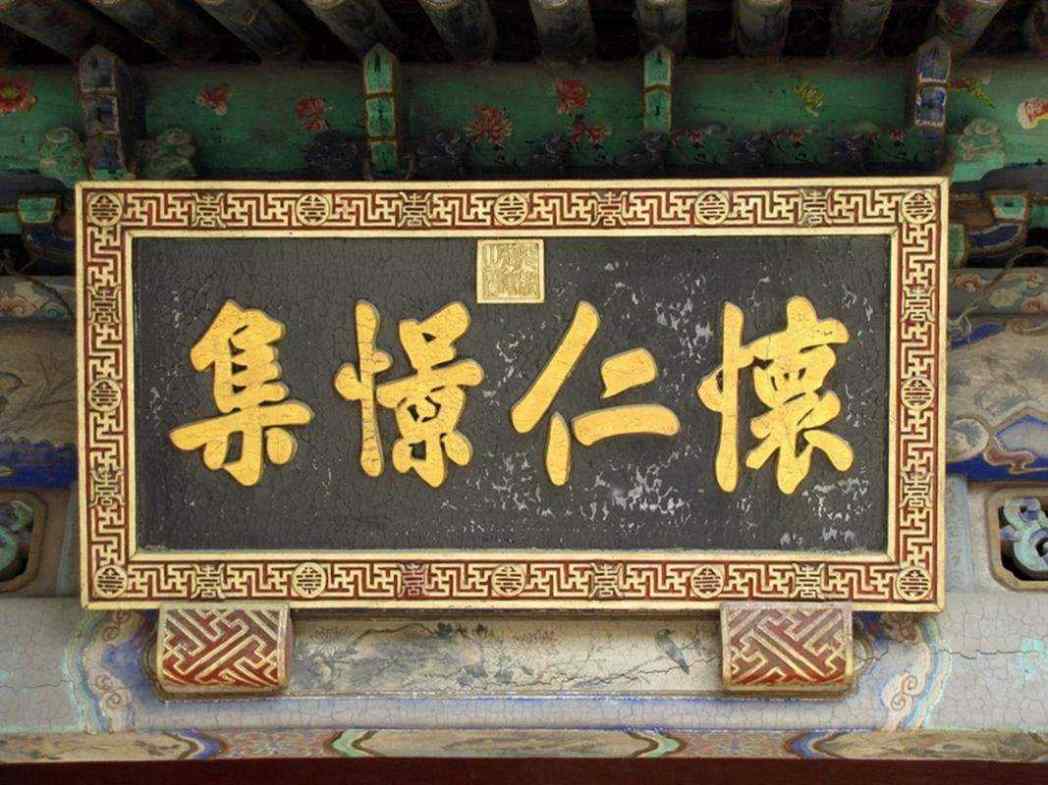 懷仁憬集